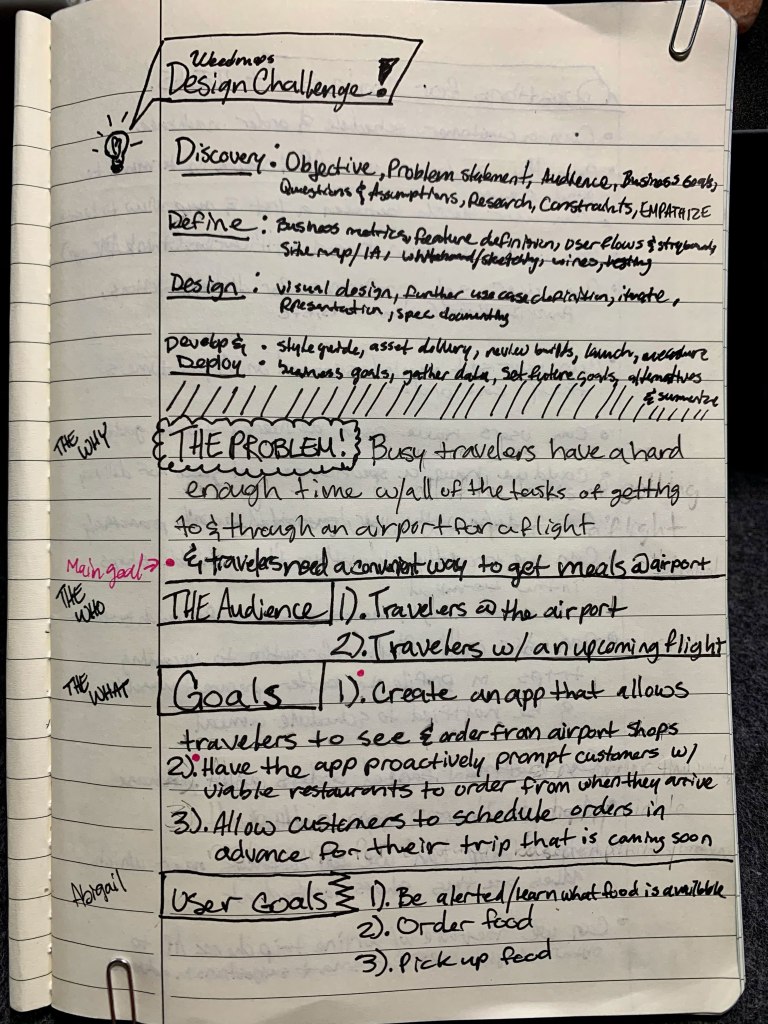 Weedmaps
Design Challenge!
Discovery: Objective, Problem statement, Audience, Business Goals,
Questions & Assumptions, Research, Constraints, EMPATHIZE
Define: Business metrics, feature definition, user flows & storyboards,
Site map/IA, whiteboard/sketching, wires, testing
Design: visual design, further use case definition, iterate,
Presentation, spec documenting
Develop & : style guide, asset delivery, review builds, launch, measure
Deploy business goals, gather data, set future goals, alternatives
& summarize
THE WHY
THE PROBLEM! Busy travelers have a hard
enough time w/all of the tasks of getting
to & through an airport for a flight
Main goal → • & travelers need a convenient way to get meals @ airport
THE WHO
THE Audience 1). Travelers @ the airport
2). Travelers w/ an upcoming flight
THE WHAT
Goals 1). Create an app that allows
travelers to see & order from airport shops
2). Have the app proactively prompt customers w/
viable restaurants to order from when they arrive
3). Allow customers to schedule orders in
advance for their trip that is coming soon
Abigail
User Goals 1). Be alerted/learn what food is available
2). Order food
3). Pick up food